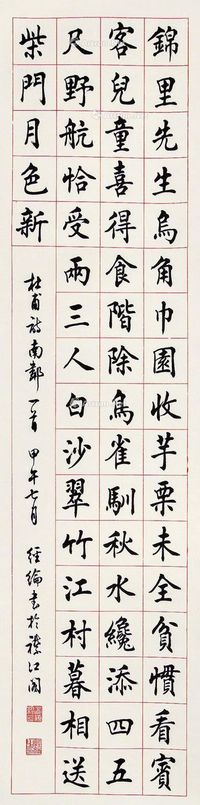 錦里先生烏角巾園收芋栗未全貧慣看賓
客兒童喜得食階除鳥雀馴秋水纔添四五
尺野航恰受兩三人白沙翠竹江村暮相送
柴門月色新
杜甫詩南鄰一首 甲午七月 經綸書於江閣